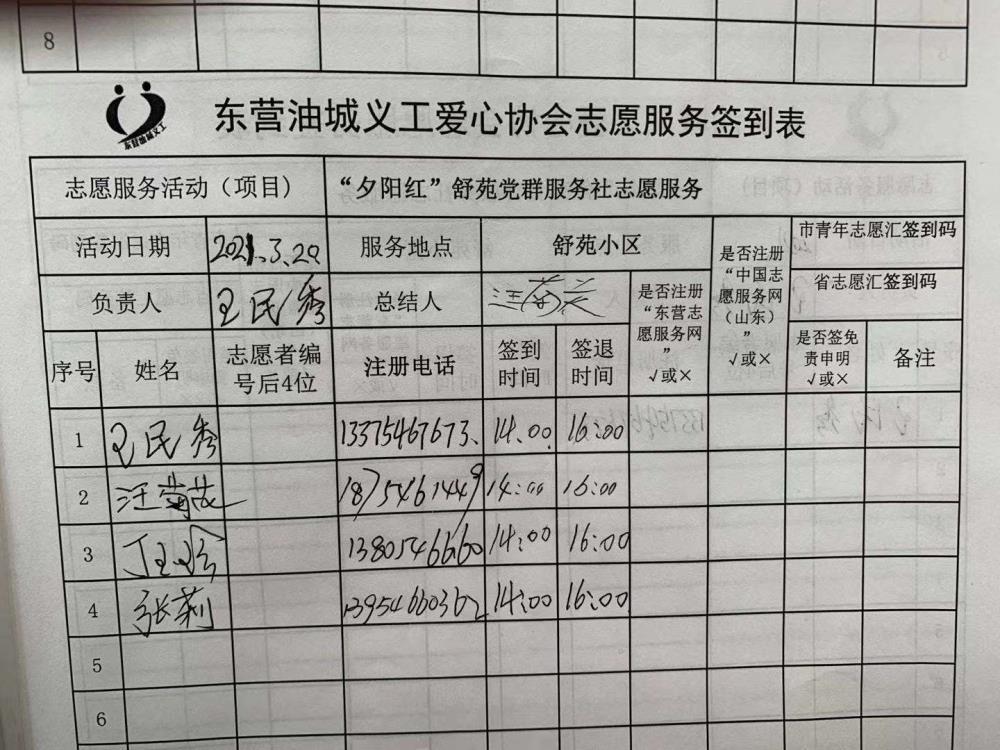 8
东营油城义工
东营油城义工爱心协会志愿服务签到表
志愿服务活动（项目） “夕阳红”舒苑党群服务社志愿服务
活动日期 2021.3.20 服务地点 舒苑小区 是否注册“中国志愿服务网（山东）”√或× 市青年志愿汇签到码
省志愿汇签到码
负责人 王民秀 总结人 汪菊 是否注册“东营志愿服务网”√或×
序号 姓名 志愿者编号后4位 注册电话 签到时间 签退时间 是否签免责申明√或× 备注
1 王民秀 13375467673、 14:00 16:00
2 汪菊 18754614449 14:00 16:00
3 13805466660 14:00 16:00
4 张莉 13954660362 14:00 16:00
5
6